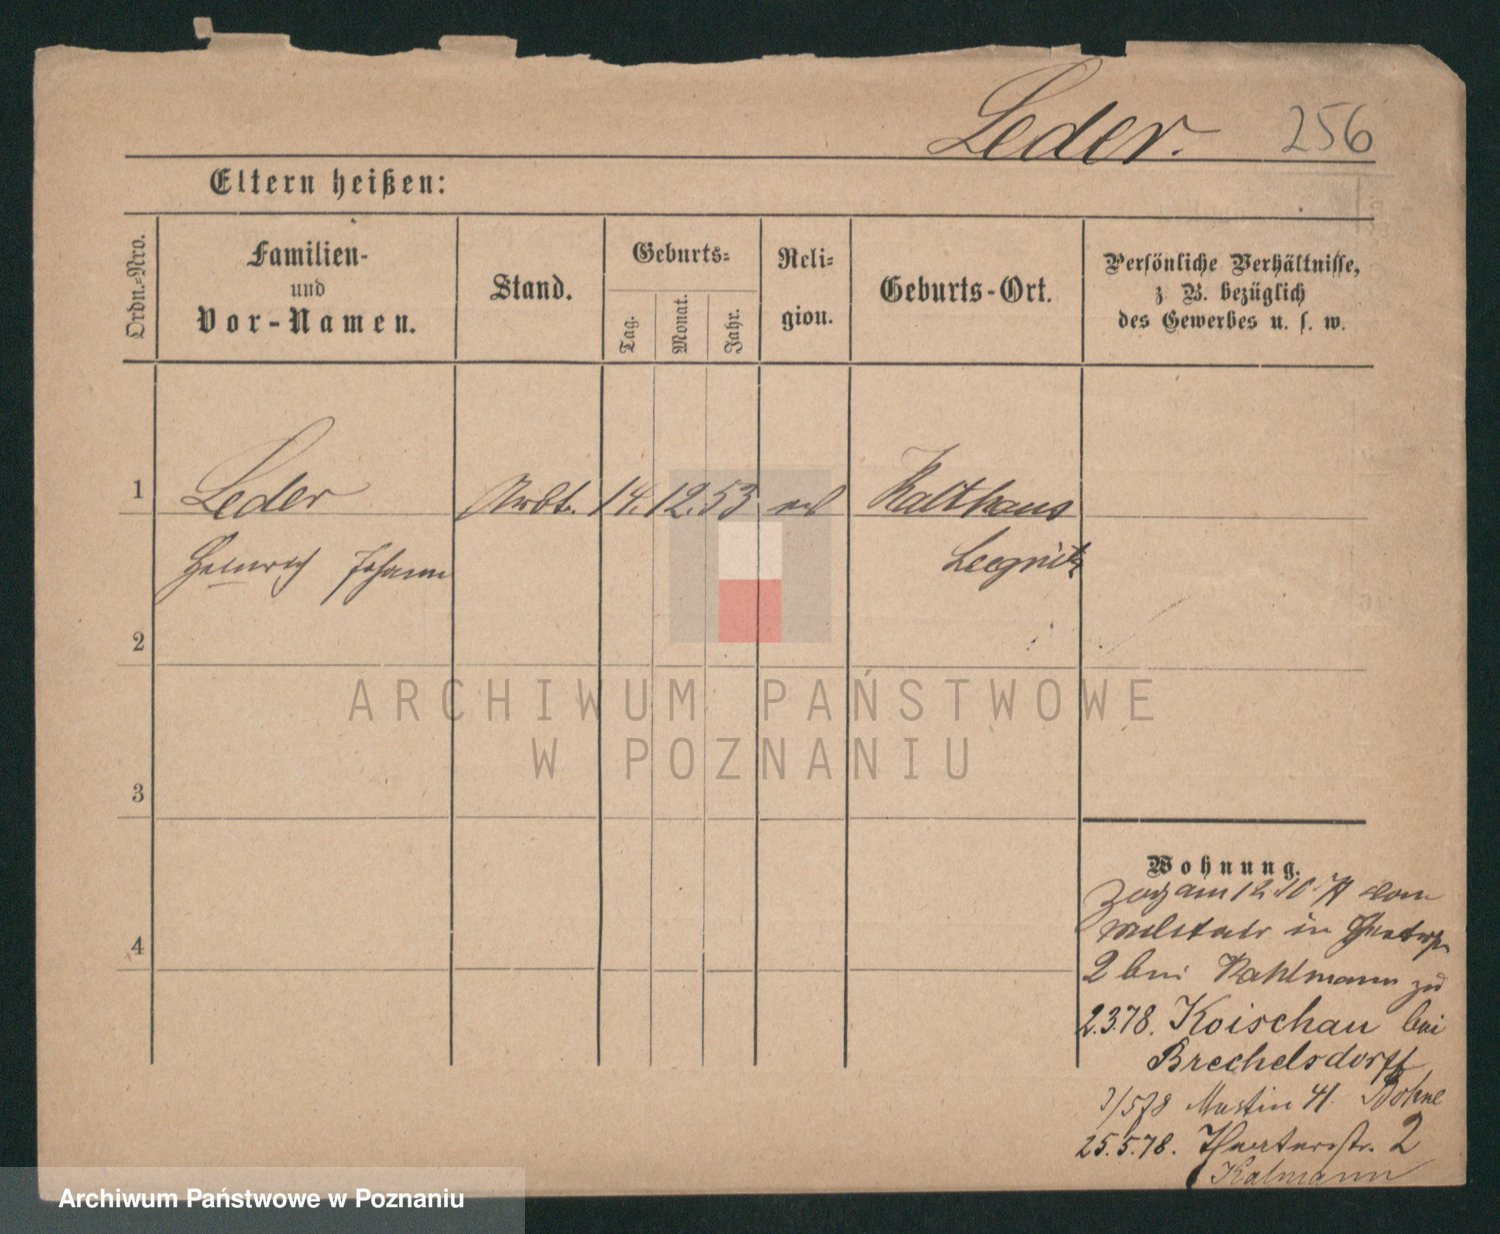 Leder. 256
Eltern heißen:
Ordn.-Nro.
Familien-
und
Vor-Namen.
Stand.
Geburts-
Tag.
Monat.
Jahr.
Reli-
gion.
Geburts-Ort.
Persönliche Verhältnisse,
z. B. bezüglich
des Gewerbes u. s. w.
1 Leder Arbt. 14. 12. 53 Kalthaus
Heinrich Johann Liegnitz
2
3
4
ARCHIWUM PAŃSTWOWE
W POZNANIU
Wohnung.
Zog am 12.10. vom
Militair in
2 bei Kahlmann zu
2.3.78. Koischau bei
Brechelsdorff
Martin 41. Bohne
25.5.78. 2
Kalmann
Archiwum Państwowe w Poznaniu